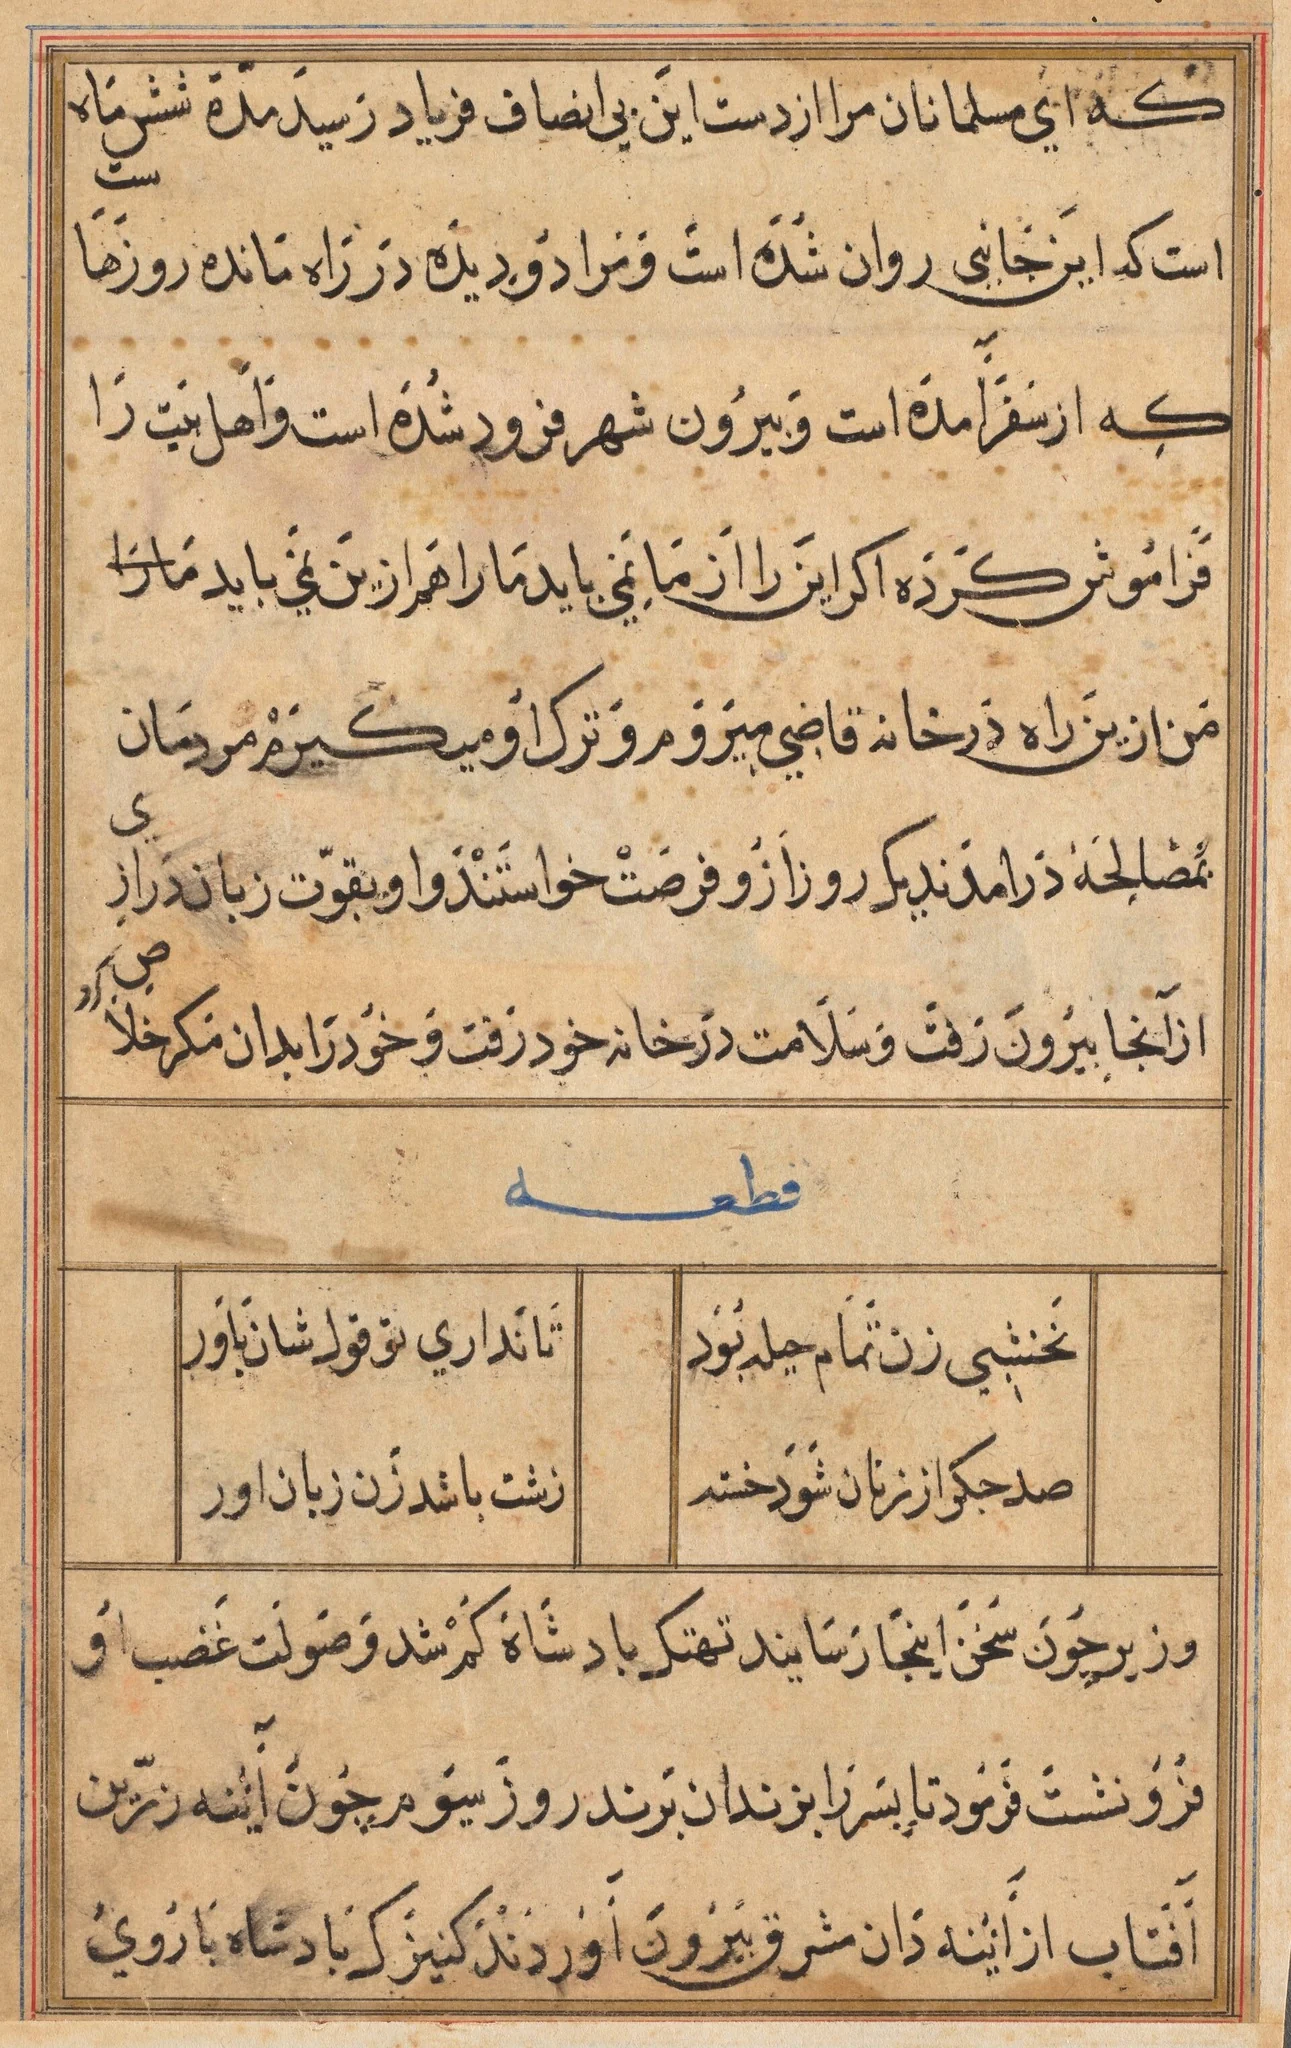 که ای مسلمانان مرا از دست این بی انصاف فریاد رسید مدّة شش ماه
است که این جانبی روان شده است و مرا دو دیده در راه مانده روزها
ست
که از سفر آمده است و بیرون شهر فرود شده است و اهل بیت را
فراموش کرده اکر این را از ما نمی باید ما را هم ازین نمی باید ما را
من ازین راه در خانه قاضی میروم و ترک او میکیرم مردمان
بمصالحه درامدند یک روز ازو فرصت خواستند و او بقوّت زبان دراز
ی
از آنجا بیرون رفت و سلامت در خانه خود رفت و خود را بدان مکر خلا
ص کرد
قطعه
نخشبی زن تمام حیله بود
تا نداری تو قول شان باور
صد جکر از زنان شود خسته
زشت باشد زن زبان اور
وزیر چون سخن اینجا رسانید تهتک بادشاه کم شد و صولت غضب او
فرو نشت فرمود تا پسر را بزندان برند روز سیوم چون آئینه زرّین
آفتاب از آئینه دان مشرق بیرون آوردند کنیزک بادشاه با روی